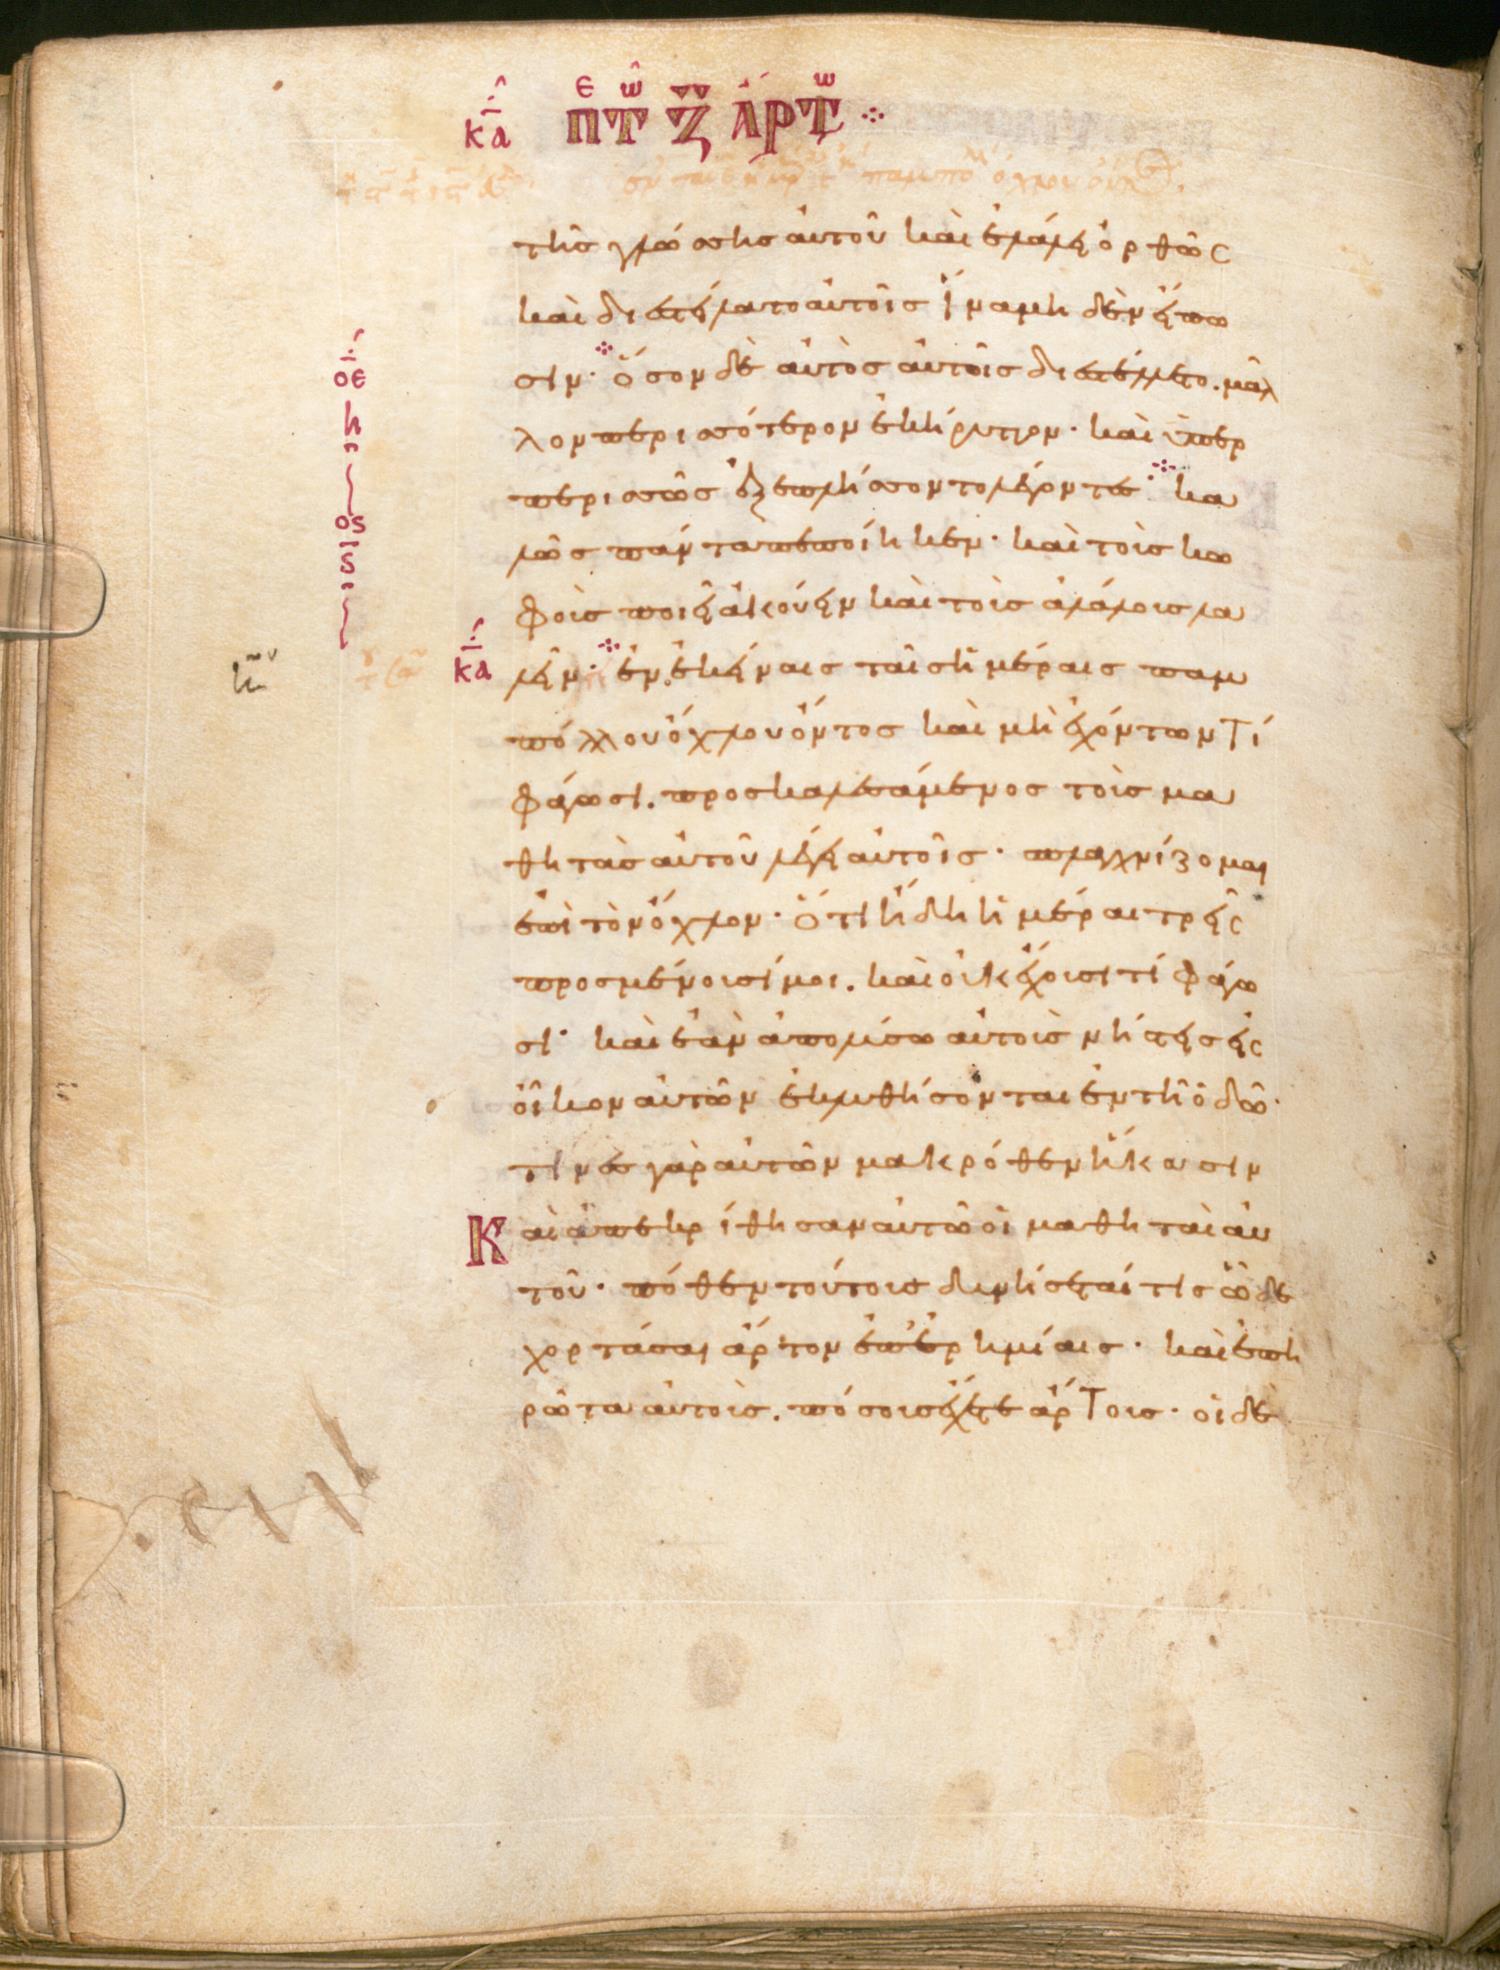 κα πε τω ζ αρτω
της γλώσσης αυτού και ελάλει ορθώς
και διεστείλατο αυτοίς ίνα μηδενί είπω
σιν· όσον δε αυτός αυτοίς διεστέλλετο. μάλ
λον περισσότερον εκήρυττον· και υπερ
περισσώς εξεπλήσσοντο λέγοντες· κα
λώς πάντα πεποίηκεν· και τοις κω
φοίς ποιεί ακούειν και τοις αλάλοις λα
οε
η
ος
ς
κα
λείν· εν εκείναις ταις ημέραις παμ
πόλλου όχλου όντος και μη εχόντων τί
φάγωσι. προσκαλεσάμενος τοις μα
θητάς αυτού λέγει αυτοίς· σπλαγχνίζομαι
επί τον όχλον· ότι ήδη ημέραι τρεις
προσμένουσί μοι. και ουκ έχουσι τί φάγω
σι· και εάν απολύσω αυτούς νήστεις εις
οίκον αυτών εκλυθήσονται εν τη οδώ·
τινές γαρ αυτών μακρόθεν ήκασιν
Και απεκρίθησαν αυτώ οι μαθηταί αυ
τού· πόθεν τούτους δυνήσεταί τις ώδε
χορτάσαι άρτον επ' ερημίαις· και επη
ρώτα αυτοίς. πόσους έχετε άρτους· οι δε